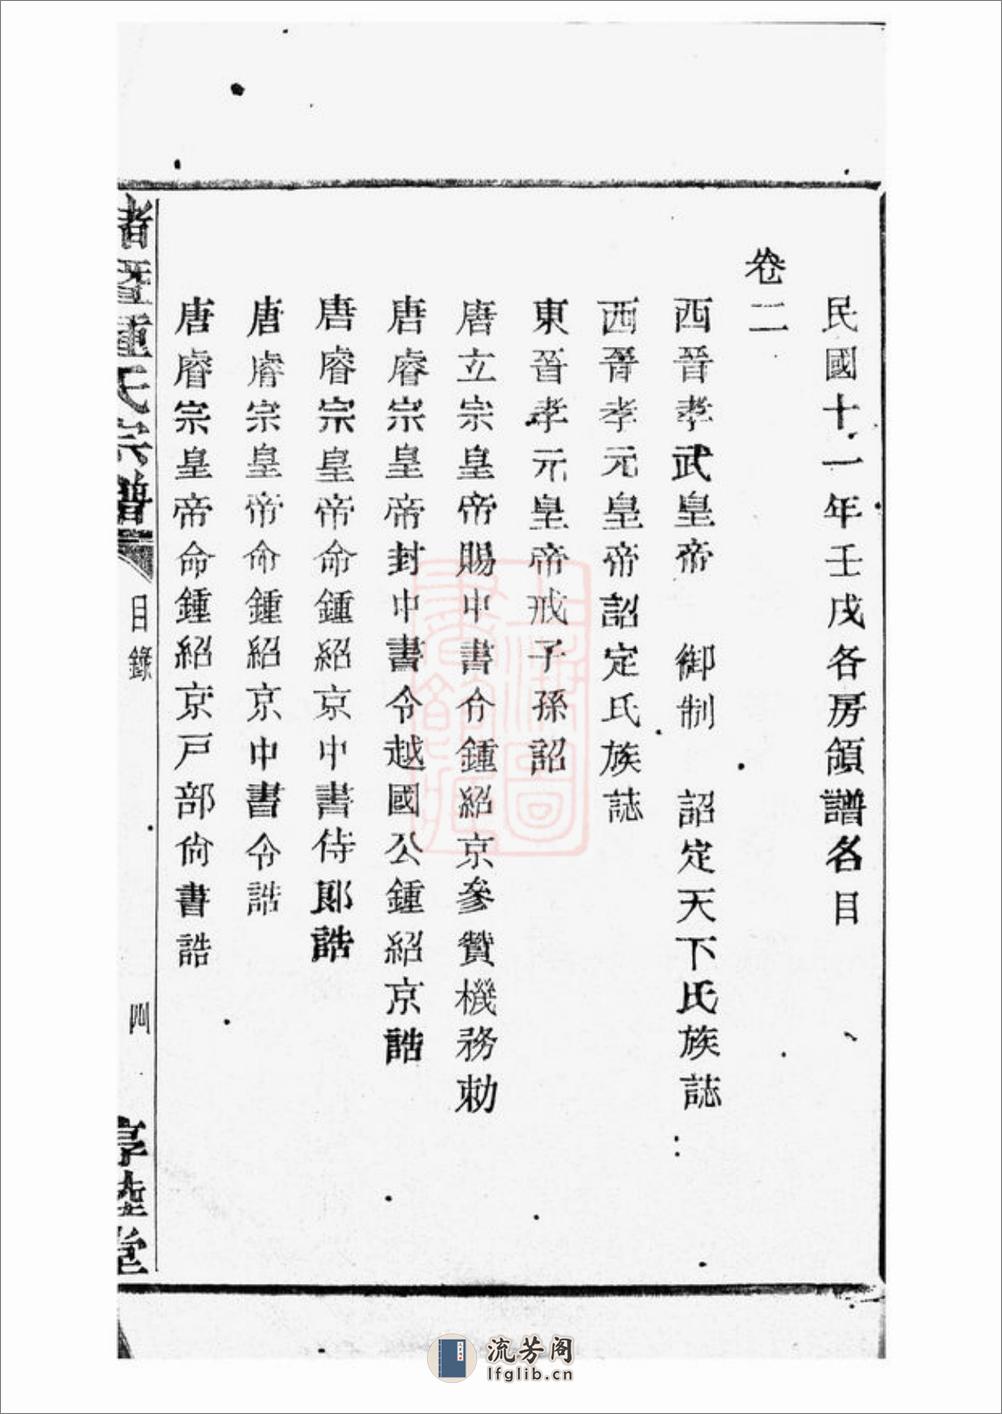 民國十一年壬戌各房領譜名目
卷二
西晉孝武皇帝 御制 詔定天下氏族誌
西晉孝元皇帝詔定氏族誌
東晉孝元皇帝戒子孫詔
唐立宗皇帝賜中書令鍾紹京參贊機務勅
唐睿宗皇帝封中書令越國公鍾紹京誥
唐睿宗皇帝命鍾紹京中書侍郎誥
唐睿宗皇帝命鍾紹京中書令誥
唐睿宗皇帝命鍾紹京戸部尙書誥
氏宗譜 目錄 四 堂
流芳阁
lfglib.cn